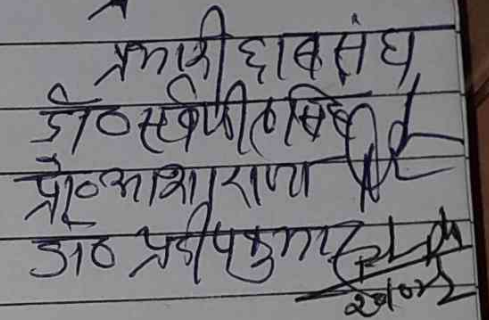 प्रभारी छात्र संघ
डॉ० सर्वजीत सिंह
प्रो० आशा राणा
डॉ० प्रदीप कुमार